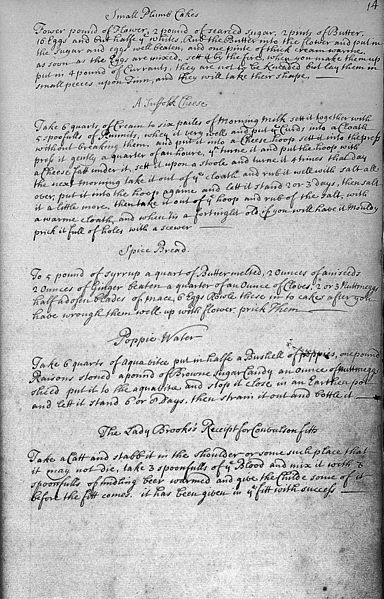 14
Small Plumb Cakes
Fower pound of Flower, 2 pound of searced Sugar, 2 pints of Butter,
16 Eggs and but halfe ye whites, Rub the Butter into the flower and put in
the Sugar and Eggs well beaten, and one pinte of thick cream warme,
as soon as the Eggs are mixed, sett it by the fire, when you make them up
put in 4 pound of Currants, they are not to be kneaded but lay them in
small pieces upon Tinn, and they will take their shape.
A Suffolk Cheese
Take 6 quarts of Cream to six pailes of Morning Milk sett it together with
5 spoonfulls of Runnitt, whey it very well and put ye Curds into a Cloath
without breaking them, and put it into a Cheese hoop sett it into the press
press it gently a quarter of an houre, yn turne it and put the hoop with
a Cheese fatt under it, sett it upon a stoole and turne it 4 times that day
the next morning take it out of ye cloath and rub it well with salt all
over, put it into the hoop againe and let it stand 2 or 3 days, then salt
it a little more, then take it out of ye hoop and rub of the salt, with
a warme cloath, and when tis a fortnight old if you will have it Mouldy
prick it full of holes with a scewer
Spice Bread
To 5 pound of syrrup a quart of Butter melted, 2 Ounces of aniseeds
2 Ounces of Ginger beaten a quarter of an Ounce of Cloves, 2 or 3 Nuttmeggs
half a dosen blades of mace, 6 Eggs Rowle these in to cakes after you
have wrought them well up with flower prick Them
Poppie Water
Take 6 quarts of aqua vitee put in halfe a Bushell of Poppies, one pound
Raisons stoned a pound of Browne Sugar Candy an ounce of Nuttmegg
sliced put it to the aqua vitee and stop it close in an Earthen pot
and let it stand 6 or 8 Days, then strain it out and bottle it
The Lady Brooks's Receipt for Convulson fitts
Take a Catt and stabb it in the shoulder or some such place that
it may not die, take 3 spoonfulls of ye Blood and mix it with 3
spoonfulls of midling beer warmed and give the Childe some of it
before the fitt comes. it has been given in ye fitt with success